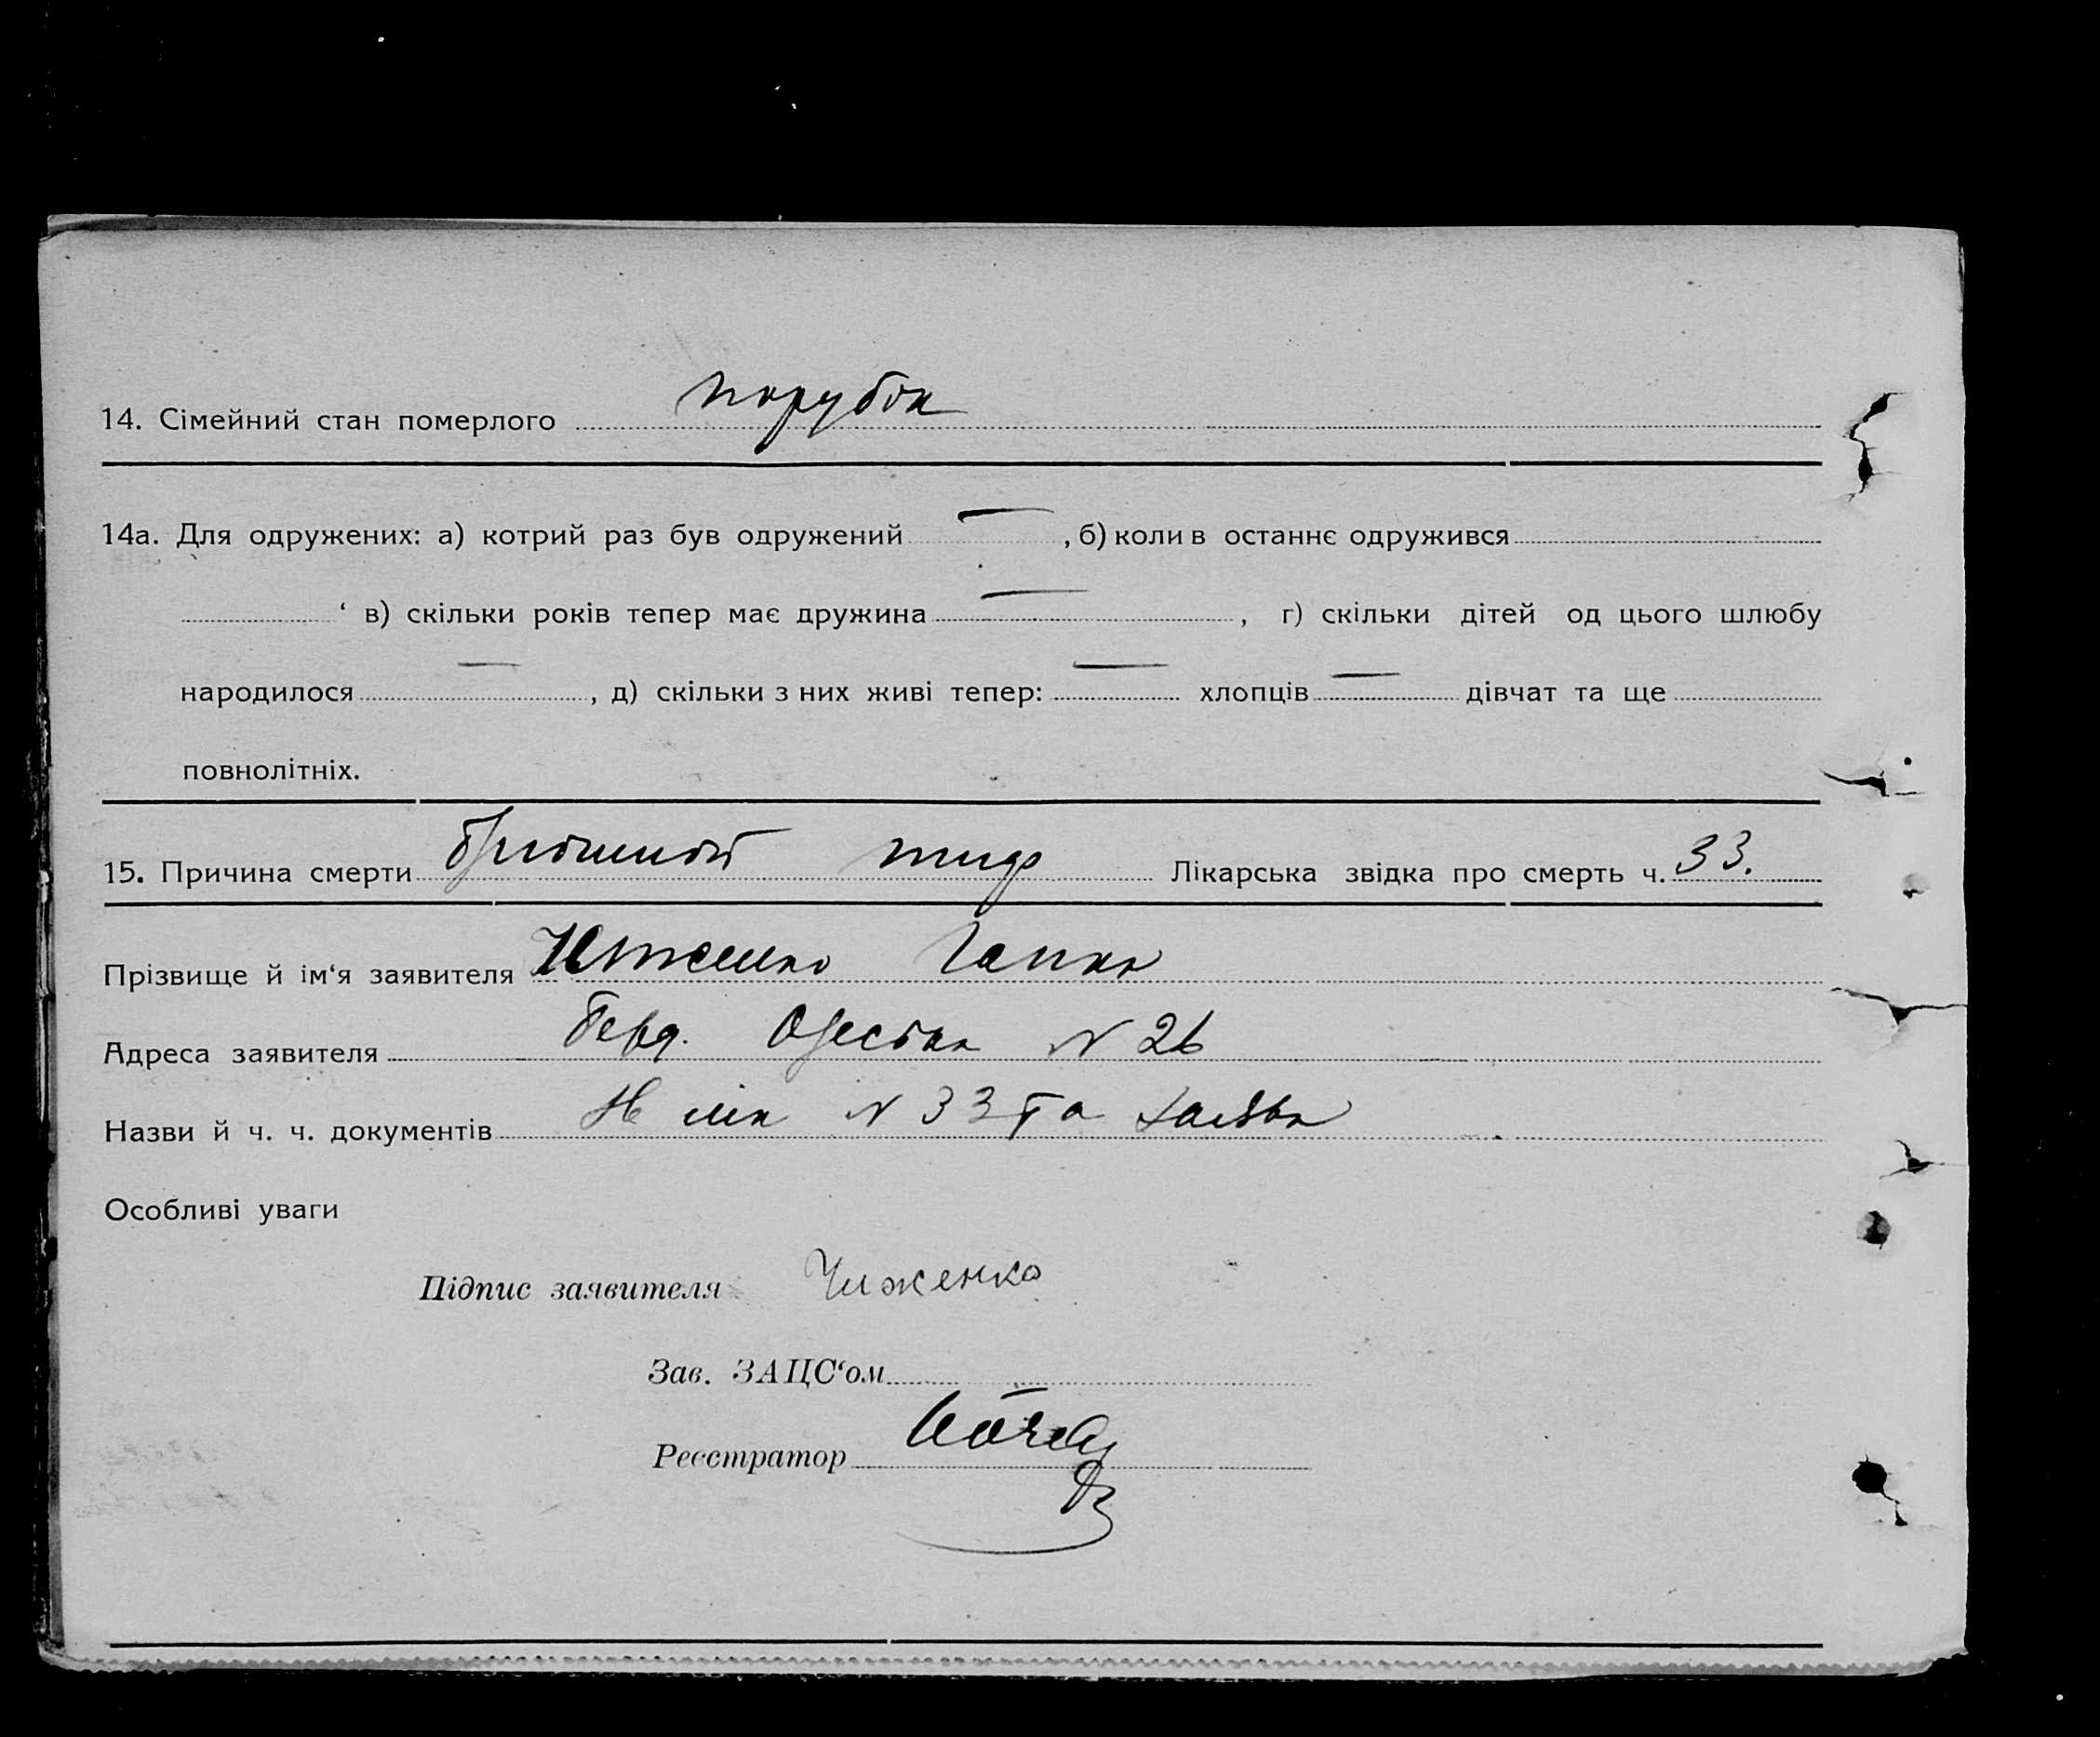 14. Сімейний стан померлого парубок
14а. Для одружених: а) котрий раз був одружений — , б) коли в останнє одружився
‘ в) скільки років тепер має дружина — , г) скільки дітей од цього шлюбу
народилося — , д) скільки з них живі тепер: — хлопців — дівчат та ще
повнолітніх.
15. Причина смерти тиф Лікарська звідка про смерть ч. 33.
Прізвище й ім‘я заявителя
Адреса заявителя Берд. Одеська N 26
Назви й ч. ч. документів N 33 та заява
Особливі уваги
Підпис заявителя Чиженко
Зав. ЗАЦС‘ом
Реєстратор